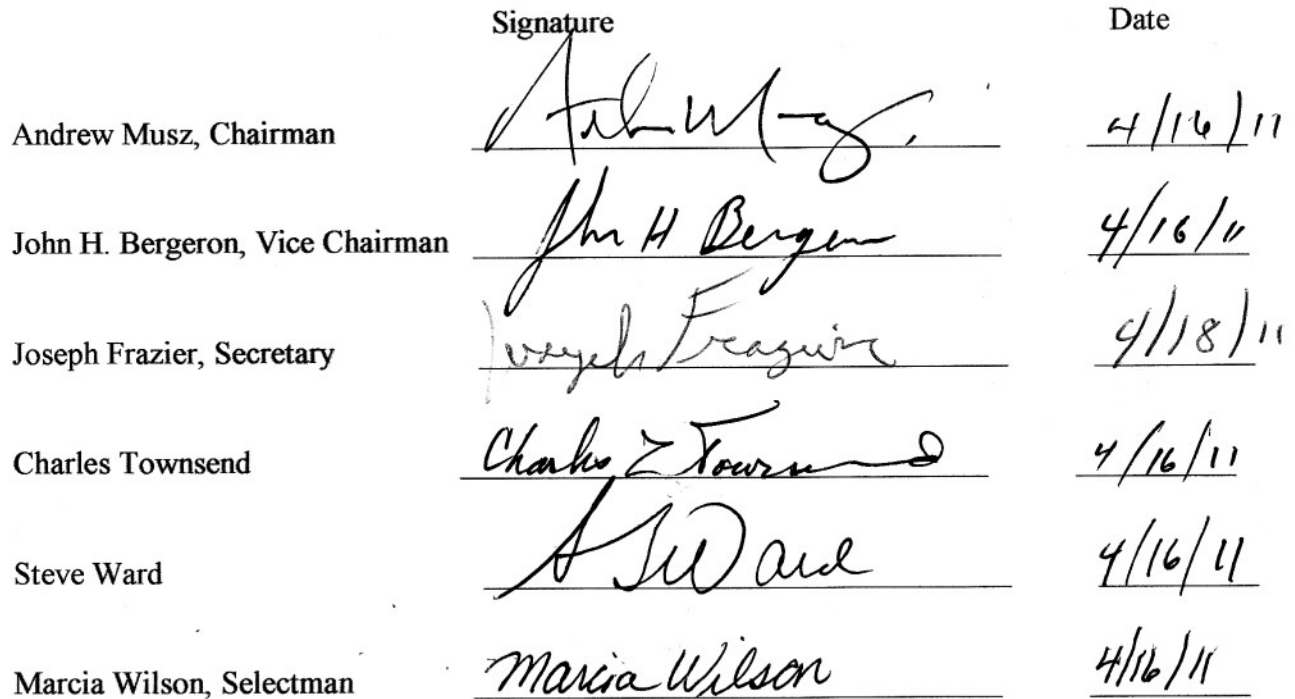 Signature Date
Andrew Musz, Chairman 4/16/11
John H. Bergeron, Vice Chairman John H Bergeron 4/16/11
Joseph Frazier, Secretary Joseph Frazier 4/18/11
Charles Townsend Charles Z Townsend 4/16/11
Steve Ward Ward 4/16/11
Marcia Wilson, Selectman Marcia Wilson 4/16/11